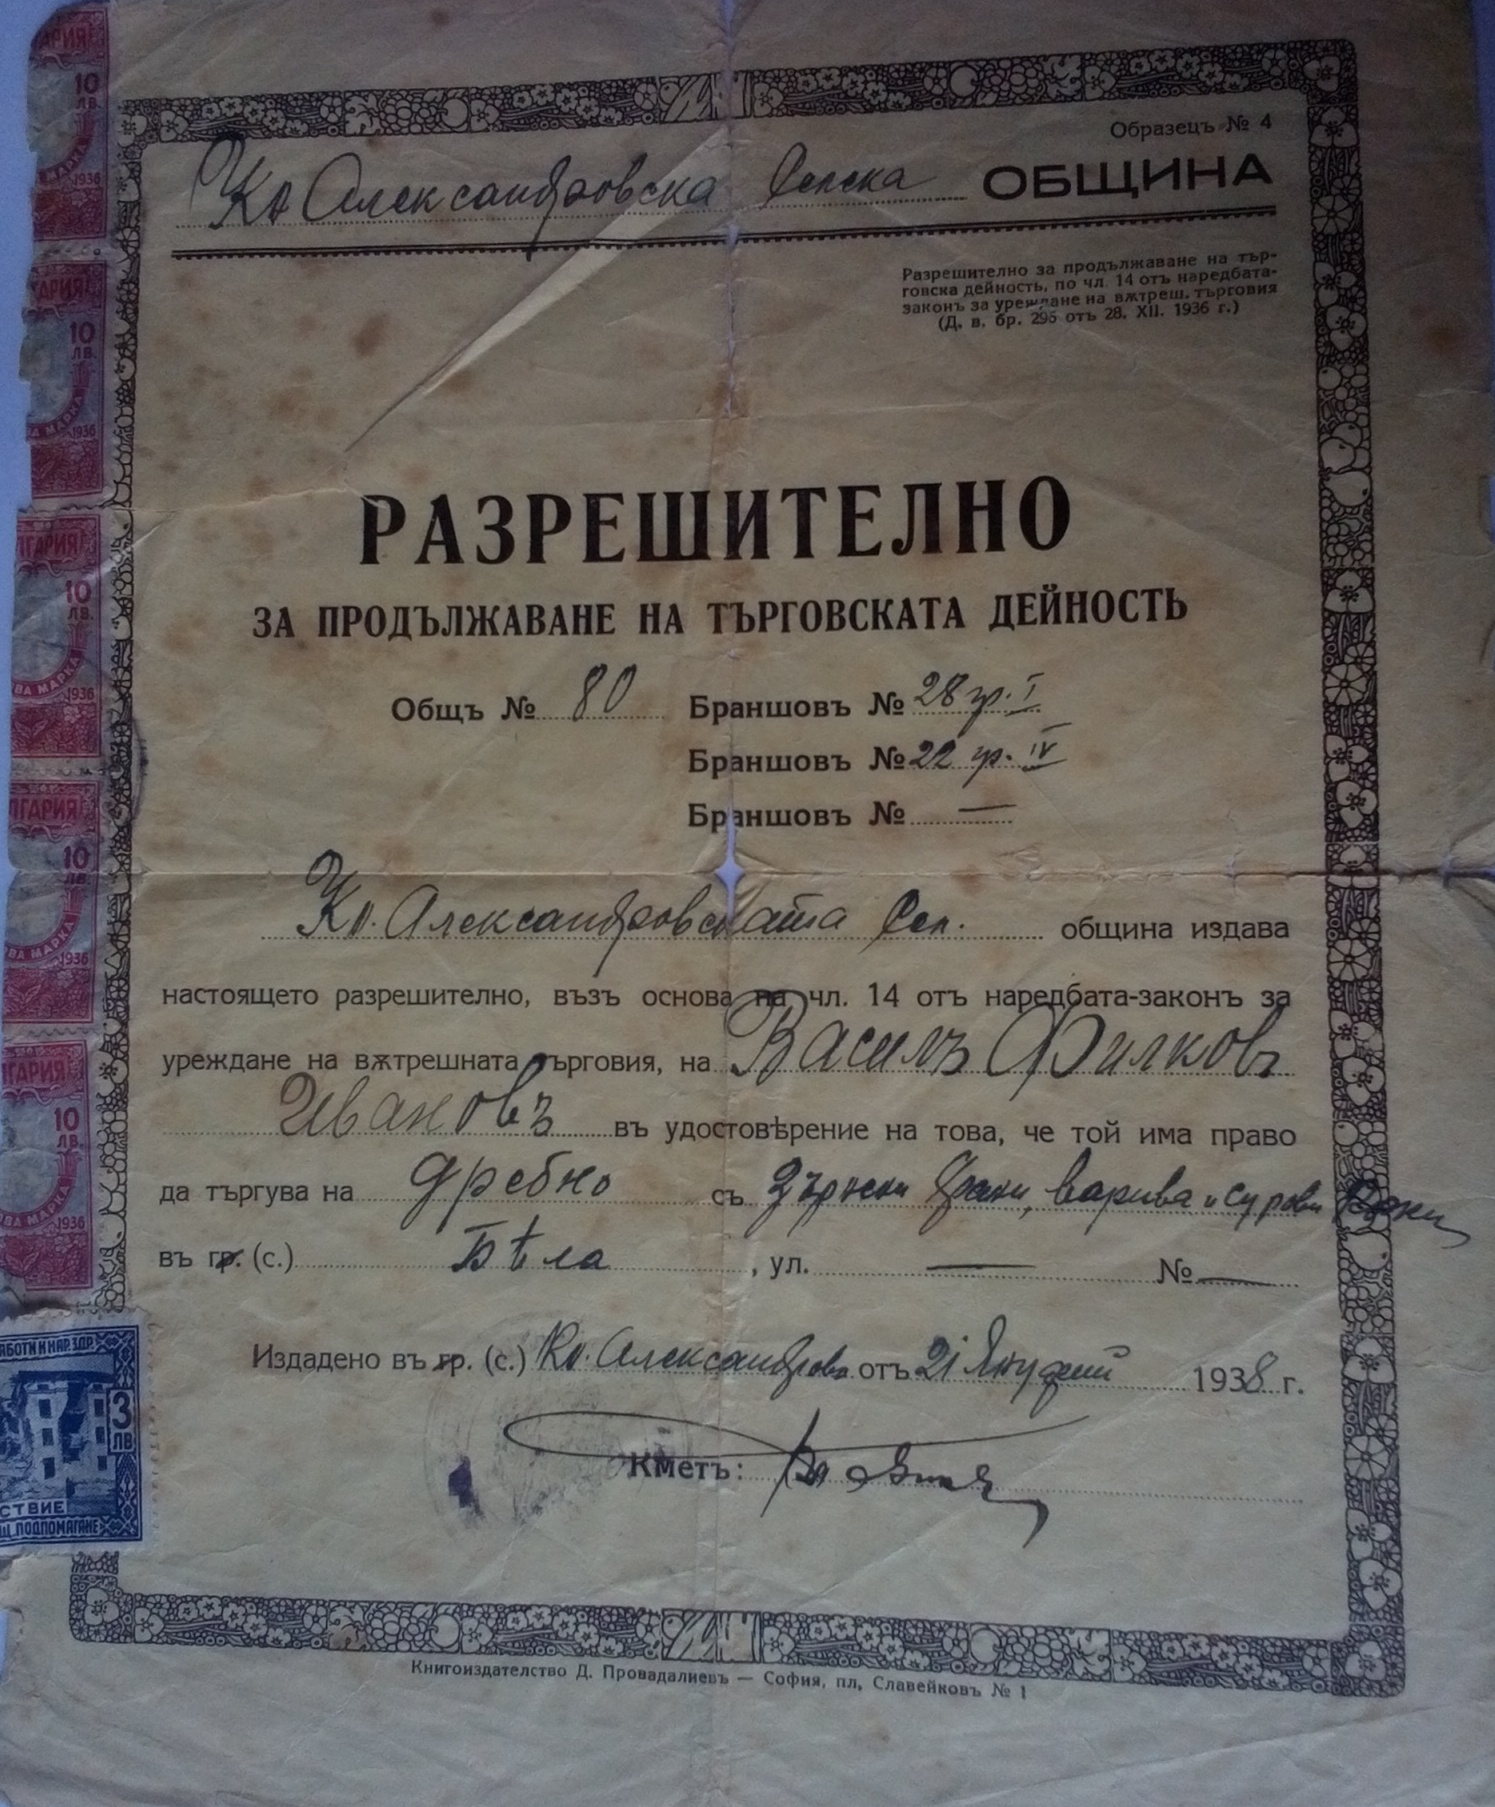 Образецъ № 4
Кн Александровска Селска ОБЩИНА
Разрешително за продължаване на тър-
говска дейность, по чл. 14 отъ наредбата-
законъ за уреждане на вѫтреш. търговия
(Д. в. бр. 295 отъ 28. XII. 1936 г.)
РАЗРЕШИТЕЛНО
ЗА ПРОДЪЛЖАВАНЕ НА ТЪРГОВСКАТА ДЕЙНОСТЬ
Общъ № 80 Браншовъ № 28 гр. I
Браншовъ № 22 гр. IV
Браншовъ № —
Кн. Александровската Сел. община издава
настоящето разрешително, възъ основа на чл. 14 отъ наредбата-законъ за
уреждане на вѫтрешната търговия, на Василъ Филковъ
Ивановъ въ удостовѣрение на това, че той има право
да търгува на дребно съ зърнени храни, варива и сурови кожи
въ гр. (с.) Бѣла, ул. — № —
Издадено въ гр. (с.) Кн. Александрово отъ 21 Януарий 1938 г.
Кметъ:
Книгоиздателство Д. Провадалиевъ — София, пл. Славейковъ № 1
АРИЯ
10
ЛВ.
МАРКА
1936
АРИЯ
10
ЛВ.
ВА МАРКА
1936
ЛГАРИЯ
10
ЛВ.
ВА МАРКА
1936
ЛГАРИЯ
10
ЛВ.
ВА МАРКА
1936
ГАРИЯ
10
ЛВ.
ВА МАРКА
1936
АБОТИ И НАР. ЗДР.
3
ЛВ
СТВИЕ
Щ. ПОДПОМАГАНЕ